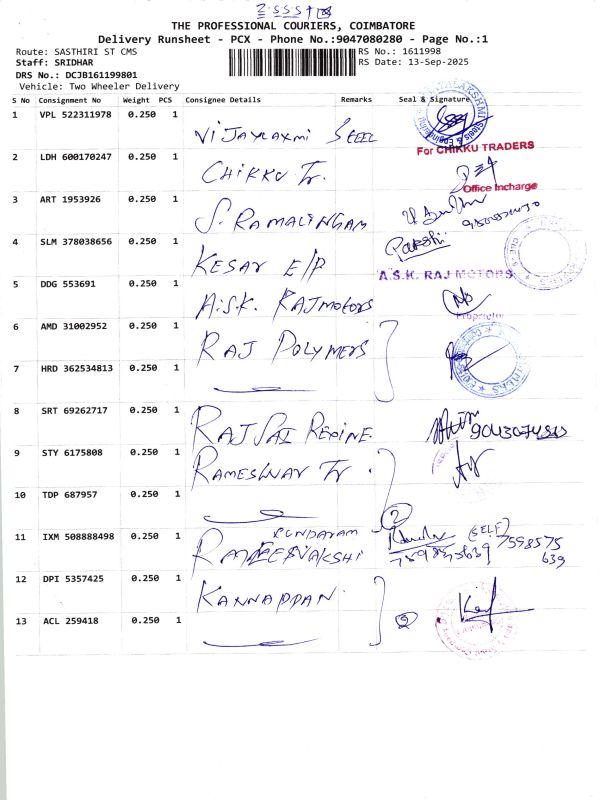 THE PROFESSIONAL COURIERS, COIMBATORE
Delivery Runsheet - PCX - Phone No.:9047080280 - Page No.:1
Route: SASTHIRI ST CMS RS No.: 1611998
Staff: SRIDHAR RS Date: 13-Sep-2025
DRS No.: DCJB161199801
Vehicle: Two Wheeler Delivery
S No Consignment No Weight PCS Consignee Details Remarks Seal & Signature
1 VPL 522311978 0.250 1 VIJAYLAXMI STEEL
For CHIKKU TRADERS
2 LDH 600170247 0.250 1 CHIKKU Tr.
Office Incharge
3 ART 1953926 0.250 1 S. RAMALINGAM
4 SLM 378038656 0.250 1 KESAR E/P
A.S.K. RAJ MOTORS
5 DDG 553691 0.250 1 A.S.K. RAJ MOTORS
Proprietor
6 AMD 31002952 0.250 1 RAJ POLYMERS
7 HRD 362534813 0.250 1
8 SRT 69262717 0.250 1 RAJ SAI REXINE
9 STY 6175808 0.250 1 RAMESHWAR Tr.
10 TDP 687957 0.250 1 2
11 IXM 508888498 0.250 1 SUNDARAM (SELF) 7598575
639
12 DPI 5357425 0.250 1 KANNAPPAN
13 ACL 259418 0.250 1 2